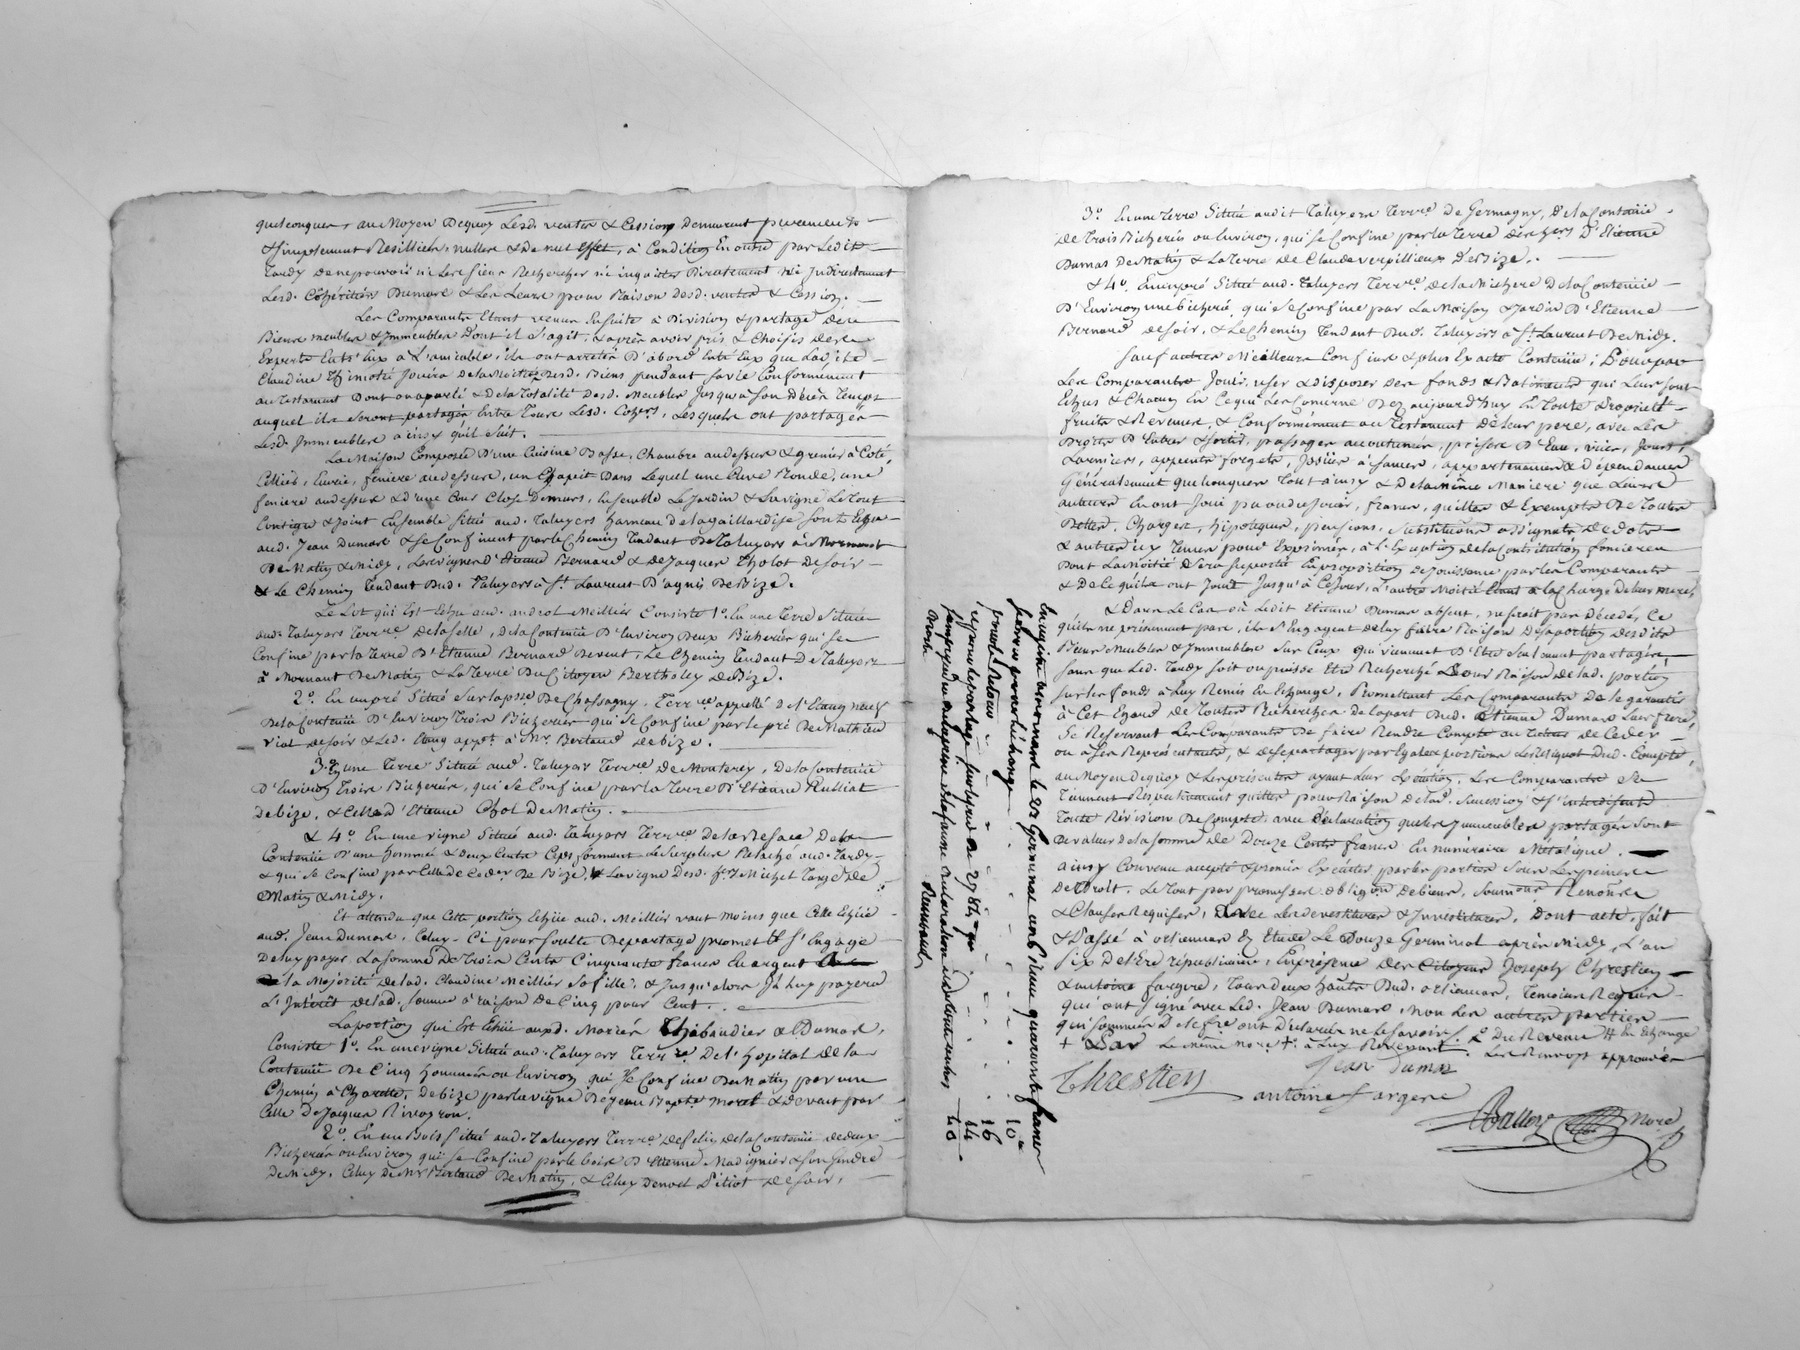 quelconques, au Moyen Dequoy Lesd. ventes & Cessions Demeurent purement
& simplement Resilliées, nulles & De nul effet, à Condition En outre par Ledit
Tardy De ne pouvoir ni Les siens Rechercher ni inquietter Directement ni Indirectement
Lesd. Cohéritiers Dumas & Les Leurs pour Raison Desd. ventes & Cession.
Les Comparants Etant venus Ensuite à Division & partage Des
Biens meubles & Immeubles Dont il s'agit, & après avoir pris & Choisis Des
Experts Entr'Eux à L'amiable, ils ont arrêtés D'abord Entr'Eux que Ladite
Claudine Jouira De la Moitié Desd. Biens pendant sa vie Conformément
au Testament Dont on a parlé & De la Totalité Desd. Meubles Jusqu'à son Décès Temps
auquel ils seront partagés Entre Tous Lesd. Cohers, Lesquels ont partagés
Lesd. Immeubles ainsy qu'il suit.
La Maison Composée D'une Cuisine Basse, Chambre au dessus & grenier à Coté,
Cellier, Ecurie, feniere au dessus, un Chapit Dans Lequel une Cuve Ronde, une
feniere au dessus & d'une Cour Close De murs, Ensemble Le Jardin & La vigne Le Tout
Contigu & Joint Ensemble Situé aud. Taluyers hameau De la gaillardise sont Echus
aud. Jean Dumas & se Confinent par le Chemin Tendant De Taluyers à Mornant
De Matin & Midy, Les vignes d'Etienne Bernard & De Jacques Tholot De soir
& Le Chemin Tendant Dud. Taluyers à St. Laurent D'agnis De Bize.
Le Lot qui Est Echu aud. Meillier Consiste 1°. En une Terre Située
aud. Taluyers Terrre. De la selle, De la Contenüe D'Environ Deux Bicherées qui se
Confine par la Terre D'Etienne Bernard De vent, Le Chemin Tendant De Taluyers
à Mornant De Matin & La Terre Du Citoyen Bertholey De Bize.
2°. En un pré Situé sur la psse De Chassagny, Terrre appellé De L'Etang neuf
De la Contenüe D'Environ Trois Bicherées qui se Confine par le pré De Mathieu
Vial De soir & Led. Etang appt. à Mr. Bertaud De bize.
3°. Une Terre Située aud. Taluyers Terrre. De Monterey, De la Contenüe
D'Environ Trois Bicherées, qui se Confine par la Terre D'Etienne Rulliat
De bize, & Celle d'Etienne De Matin.
& 4°. En une vigne Située aud. Taluyers Terrre De la
Contenüe d'une hommée & Deux Cents Ceps formant Le surplus Relaché aud. Tardy
& qui se Confine par Celle De Bize, & La vigne Desd. Michel Targe De
Matin & Midy.
Et attendu que Cette portion Echüe aud. Meillier vaut moins que Celle Echüe
aud. Jean Dumas, Celuy-Ci pour soulte De partage promet & s'Engage
De luy payer La somme De Trois Cents Cinquante francs En argent
à la Majorité De lad. Claudine Meillier sa fille, & Jusqu'alors Il luy payera
L'Intérêt De lad. somme à raison De Cinq pour Cent.
La portion qui Est Echüe auxd. Mariés Thibaudier & Dumas,
Consiste 1°. En une vigne Située aud. Taluyers Terrre. De L'hopital De la
Contenüe De Cinq hommées ou Environ qui se Confine De Matin par un
Chemin à Charette, De bize par la vigne De Jean Bapte. Morel & De vent par
Celle De Jacques Rivoyron.
2°. En un Bois Situé aud. Taluyers Terrre. De De la Contenüe De deux
Bicherées ou Environ qui se Confine par le bois D'Etienne Madignier & son Gendre
De Midy, Celuy De Mr Bertaud De Matin, & Celuy De De soir,
3°. En une Terre Située audit Taluyers Terrre. De Germagny, De la Contenüe
De Trois Bicherées ou Environ, qui se Confine par la Terre Des hers. D'Etienne
Dumas De Matin & La Terre De Claude verpillieux De Bize.
& 4°. En un pré Situé aud. Taluyers Terrre. De la Michere De la Contenüe
D'Environ une bicherée, qui se Confine par La Maison & Jardin D'Etienne
Bernard De soir, & Le Chemin Tendant Dud. Taluyers à St. Laurent De Midy.
Sauf autres Meilleurs Confins & plus Exacte Contenüe; Pour par
Les Comparants Jouir, user & disposer Des fonds & Batiments qui Leur sont
Echus & Chacun En Ce qui Les Concerne Dez aujourd'huy En Toute Propriété
fruits & Revenus, & Conformément au Testament De Leur pere, avec Les
Droits D'Entrée & sorties, passages accoutumés, prises D'Eau, vües, Jours,
Larmiers, appents forgets, Issües à Chaines, appartenances & dépendances
Généralement quelconques Tout ainsy & De la même Maniere que Leurs
auteurs En ont Joui pu ou du Jouir, francs, quittes & Exempts De Toutes
Dettes, Charges, hipoteques, pensions, Substitutions assignats De dots
& autres icy Tenus pour Exprimés, à L'Exception De la Contribution fonciere
Dont La Moitié sera suportée En proportion De Jouissance par Les Comparants
& De Ce qu'ils ont Jouis Jusqu'à Ce Jour, L'autre Moitié Etant à la Charge De leur mere,
& Dans Le Cas où Ledit Etienne Dumas absent, ne seroit pas Décédé, Ce
qu'ils ne présument pas, ils s'Engagent De luy faire Raison De sa portion Desdits
Biens Meubles & Immeubles sur Ceux qui viennent D'Etre seulement partagés,
sans que Led. Tardy soit ou puisse Etre Recherché pour Raison De lad. portion
sur les fonds à Luy Remis En Echange, Promettant Les Comparants De Le garantir
à Cet Egard De Toutes Recherches De la part Dud. Etienne Dumas Leur frere,
Se Réservant Les Comparants De faire Rendre Compte au De Ceder
ou à ses Représentants, & De se partager par Egales portions Le Reliquat Dud. Compte,
au Moyen De quoy & Les présentes ayant Leur Exécution, Les Comparants se
Tiennent Respectivement quittes pour Raison De lad. succession & s'Interdisent
Toute Révision De Compte, avec Déclaration que Les Immeubles partagés sont
De valeur De la somme De Douze Cents francs En numeraire Métalique.
ainsy Convenu accepté & promis Exécuter par les parties sous Les peines
De Droit. Le Tout par promesse obligon De biens, soumons Renonces
& Clauses Requises, avec Les devestitures & Investitures, Dont acte, fait
& Passé à orlienas En Etude Le Douze Germinal après Midy, L'an
six De L'Ere républicaine; En présence Des Citoyens Joseph Chrestien
& antoine fargere, Tous deux habts. Dud. orlienas, Temoins Requis
qui ont signé avec Led. Jean Dumas, non Les autres parties
qui sommées De le faire ont Déclarées ne Le savoir. Du Revenu # En Echange
Les Renvoys approuvés
Chrestien
Jean dumas
antoine fargere
Enregistré à mornant le 23 Germinal an 6 Reçu quarante francs
savoir pour l'échange 10
pour le 16
et pour le partage 14
40